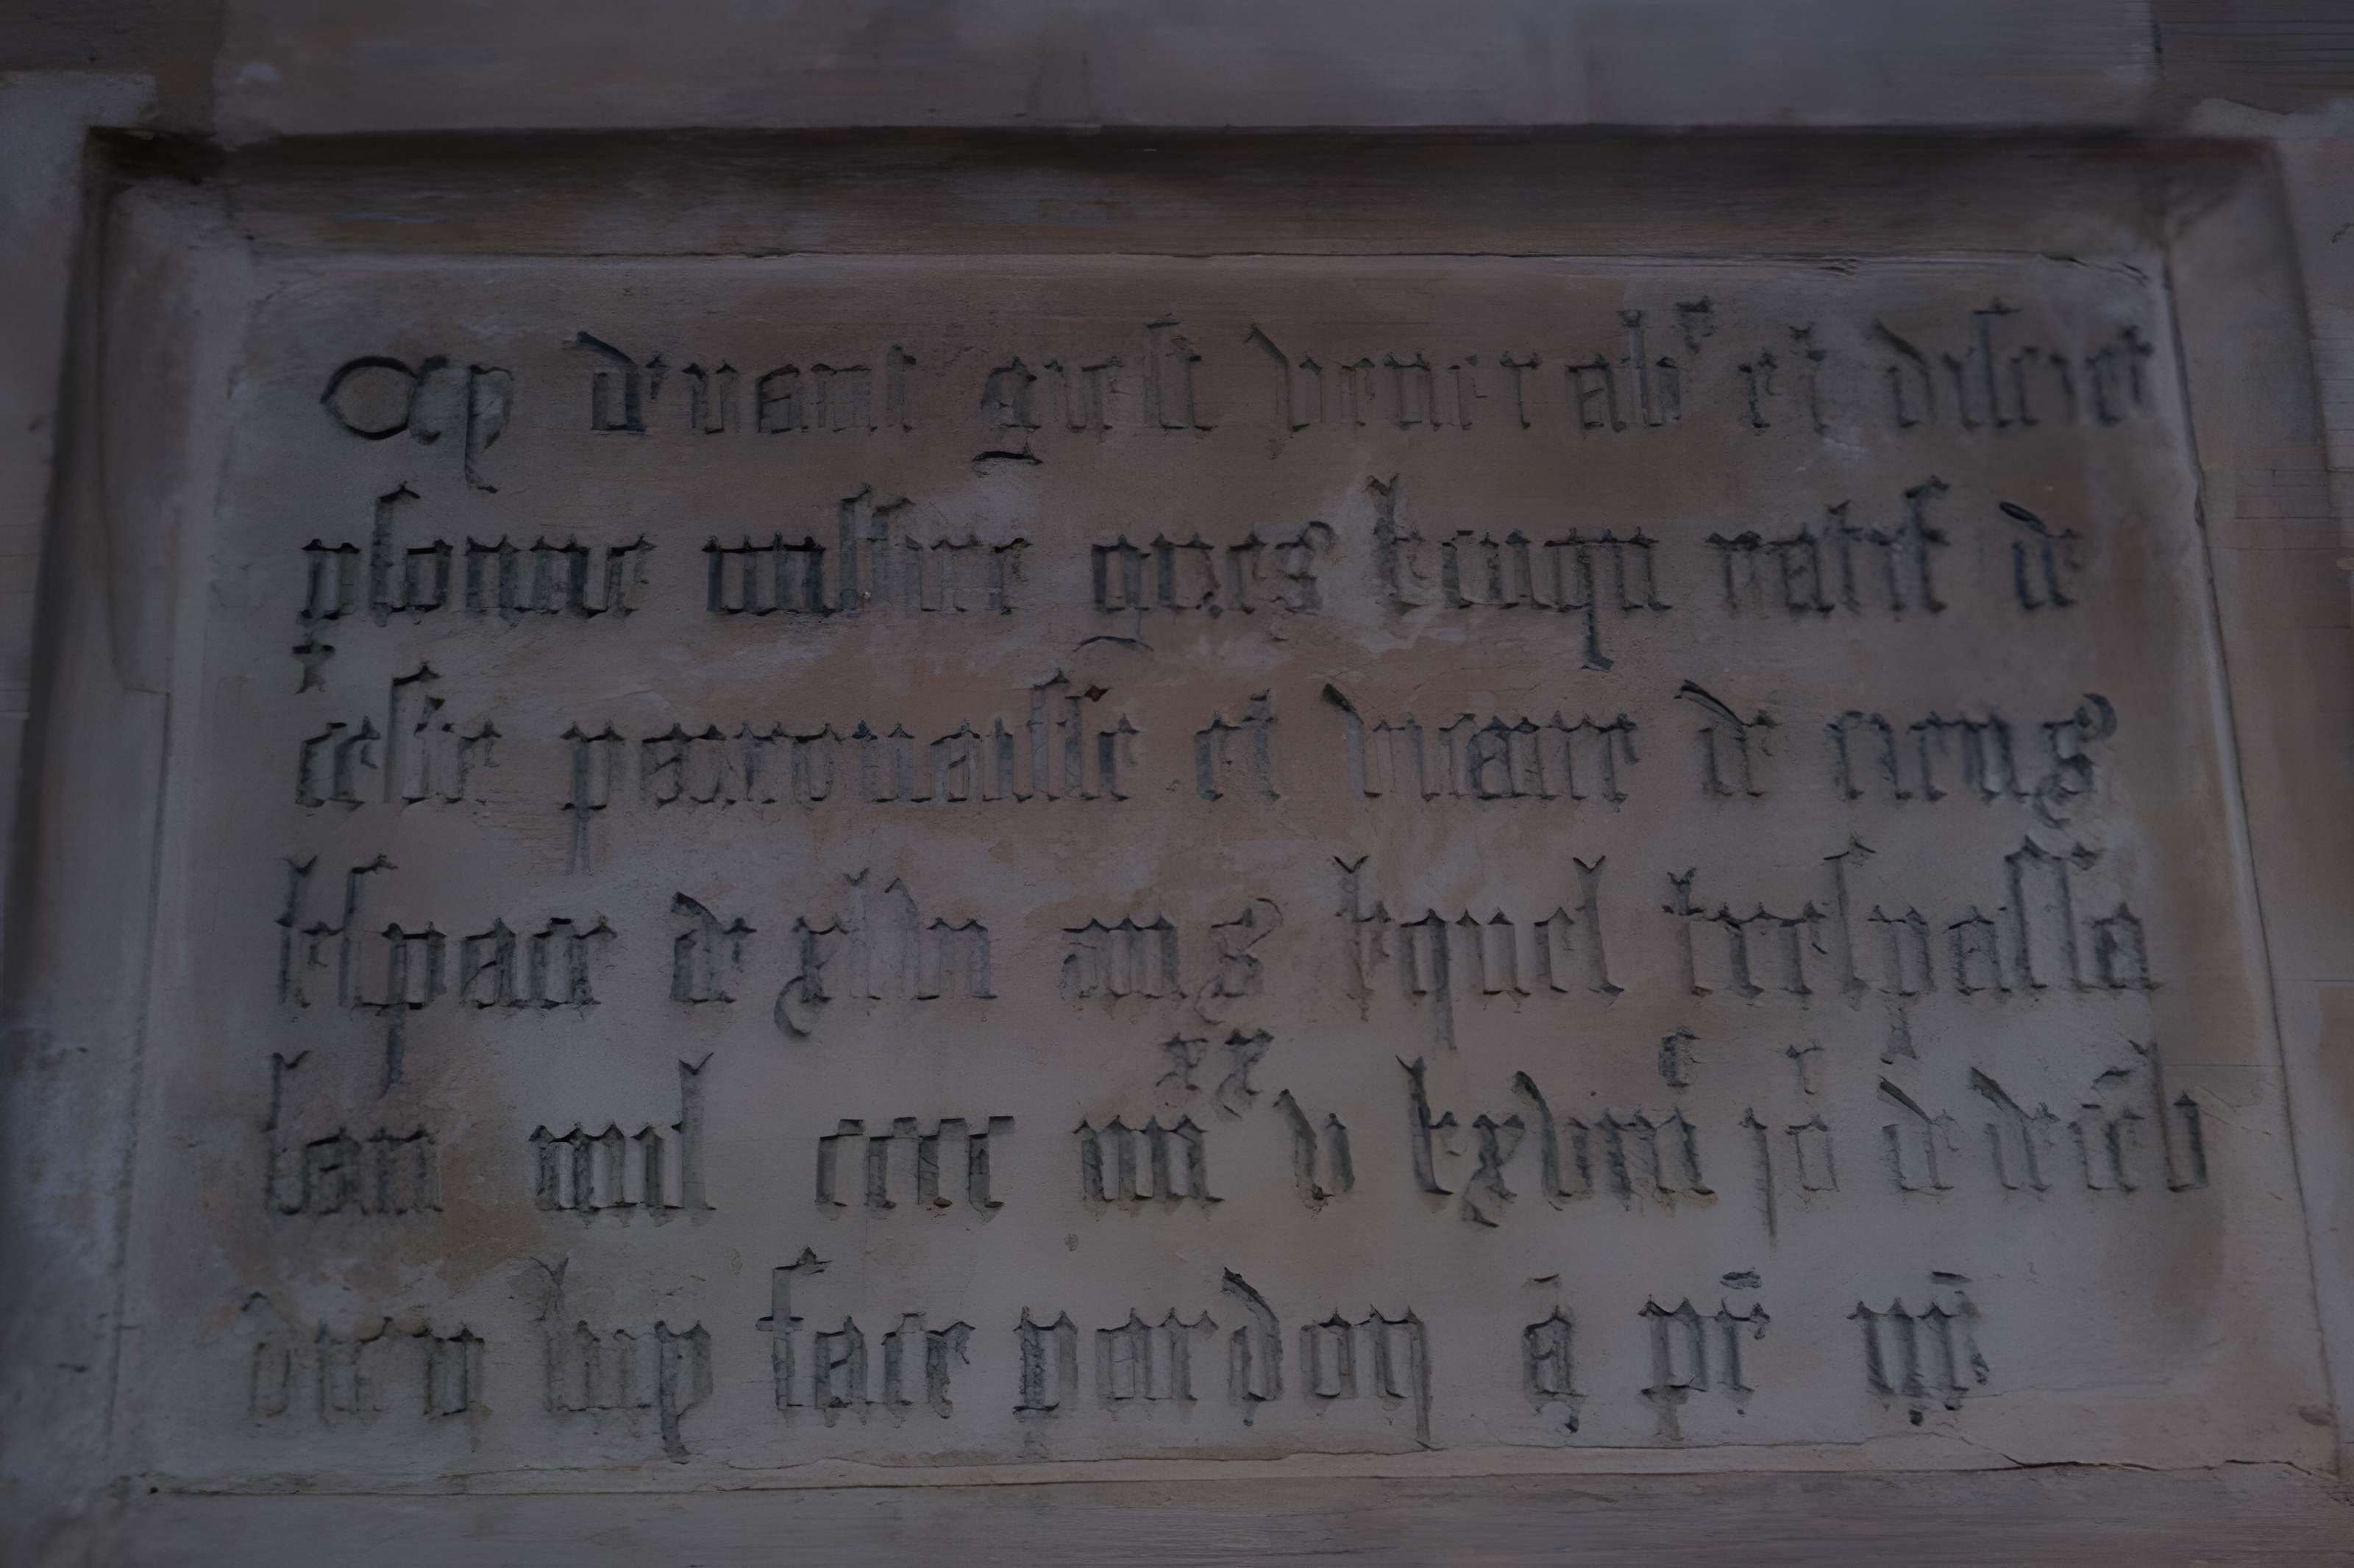 Cy d'vant gist venerab' et discret
psonne missire gues kcuqu rat rt de
ceste parrouaisse et vicaire de ciens
lespace de xlvii ans lequel trespassa
lan mil cccc iiii xx v le xviii e jo r de decēb
dieu luy face pardon ā pr̄